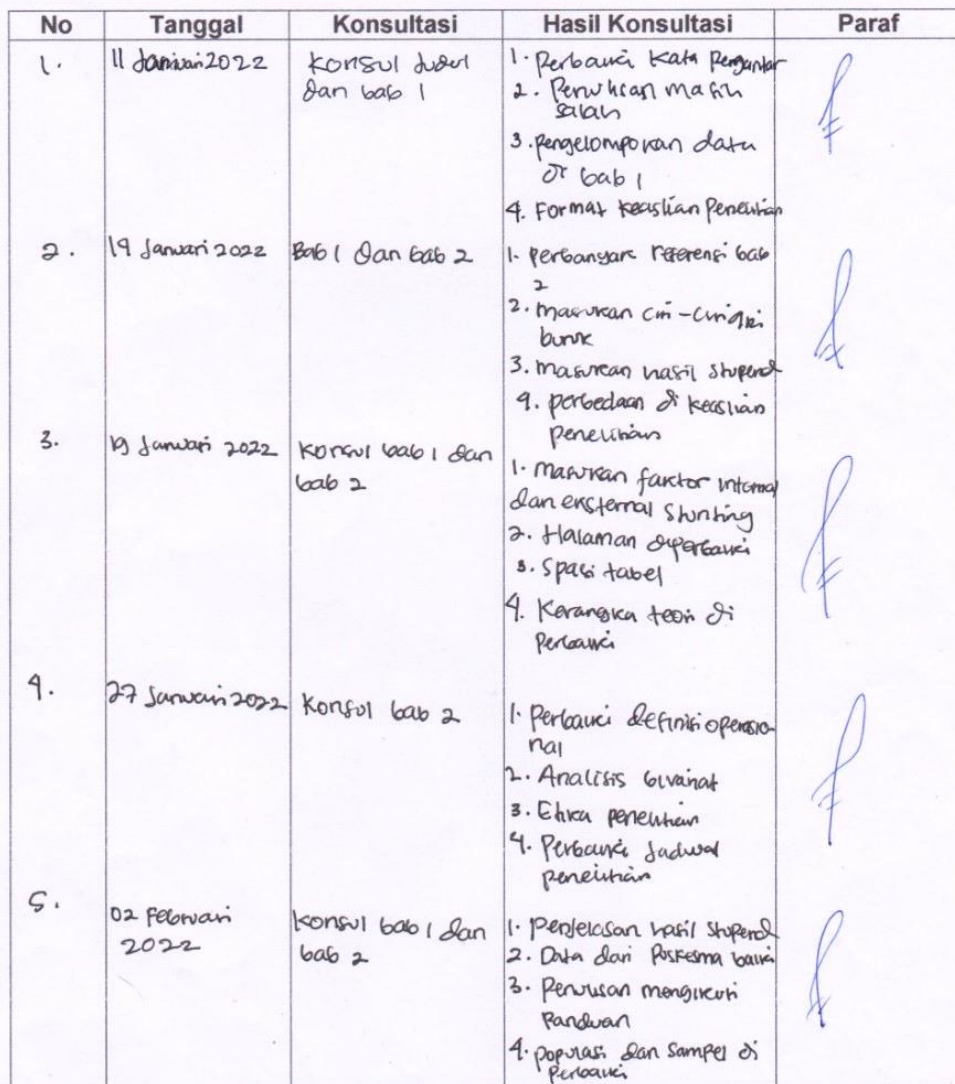 No Tanggal Konsultasi Hasil Konsultasi Paraf
1. 11 Januari 2022 Konsul Judul 1. Perbaiki Kata Pengantar
dan bab 1 2. Penulisan masih
salah
3. Pengelompokan data
di bab 1
4. Format keaslian Penelitian
2. 19 Januari 2022 Bab 1 dan bab 2 1. Perbanyak referensi bab
2
2. masukan ciri-ciri gizi
buruk
3. masukan hasil stupend
4. perbedaan di keaslian
penelitian
3. 19 Januari 2022 Konsul bab 1 dan
bab 2 1. masukan faktor internal
dan eksternal Stunting
2. Halaman diperbaiki
3. Spasi tabel
4. Kerangka teori di
Perbaiki
4. 27 Januari 2022 Konsul bab 2 1. Perbaiki definisi operasio-
nal
2. Analisis bivariat
3. Etika penelitian
4. Perbaiki Jadwal
penelitian
5. 02 Februari
2022 Konsul bab 1 dan
bab 2 1. Penjelasan hasil stupend
2. Data dari Puskesma
3. Penulisan mengikuti
Panduan
4. populasi dan Sampel di
Perbaiki